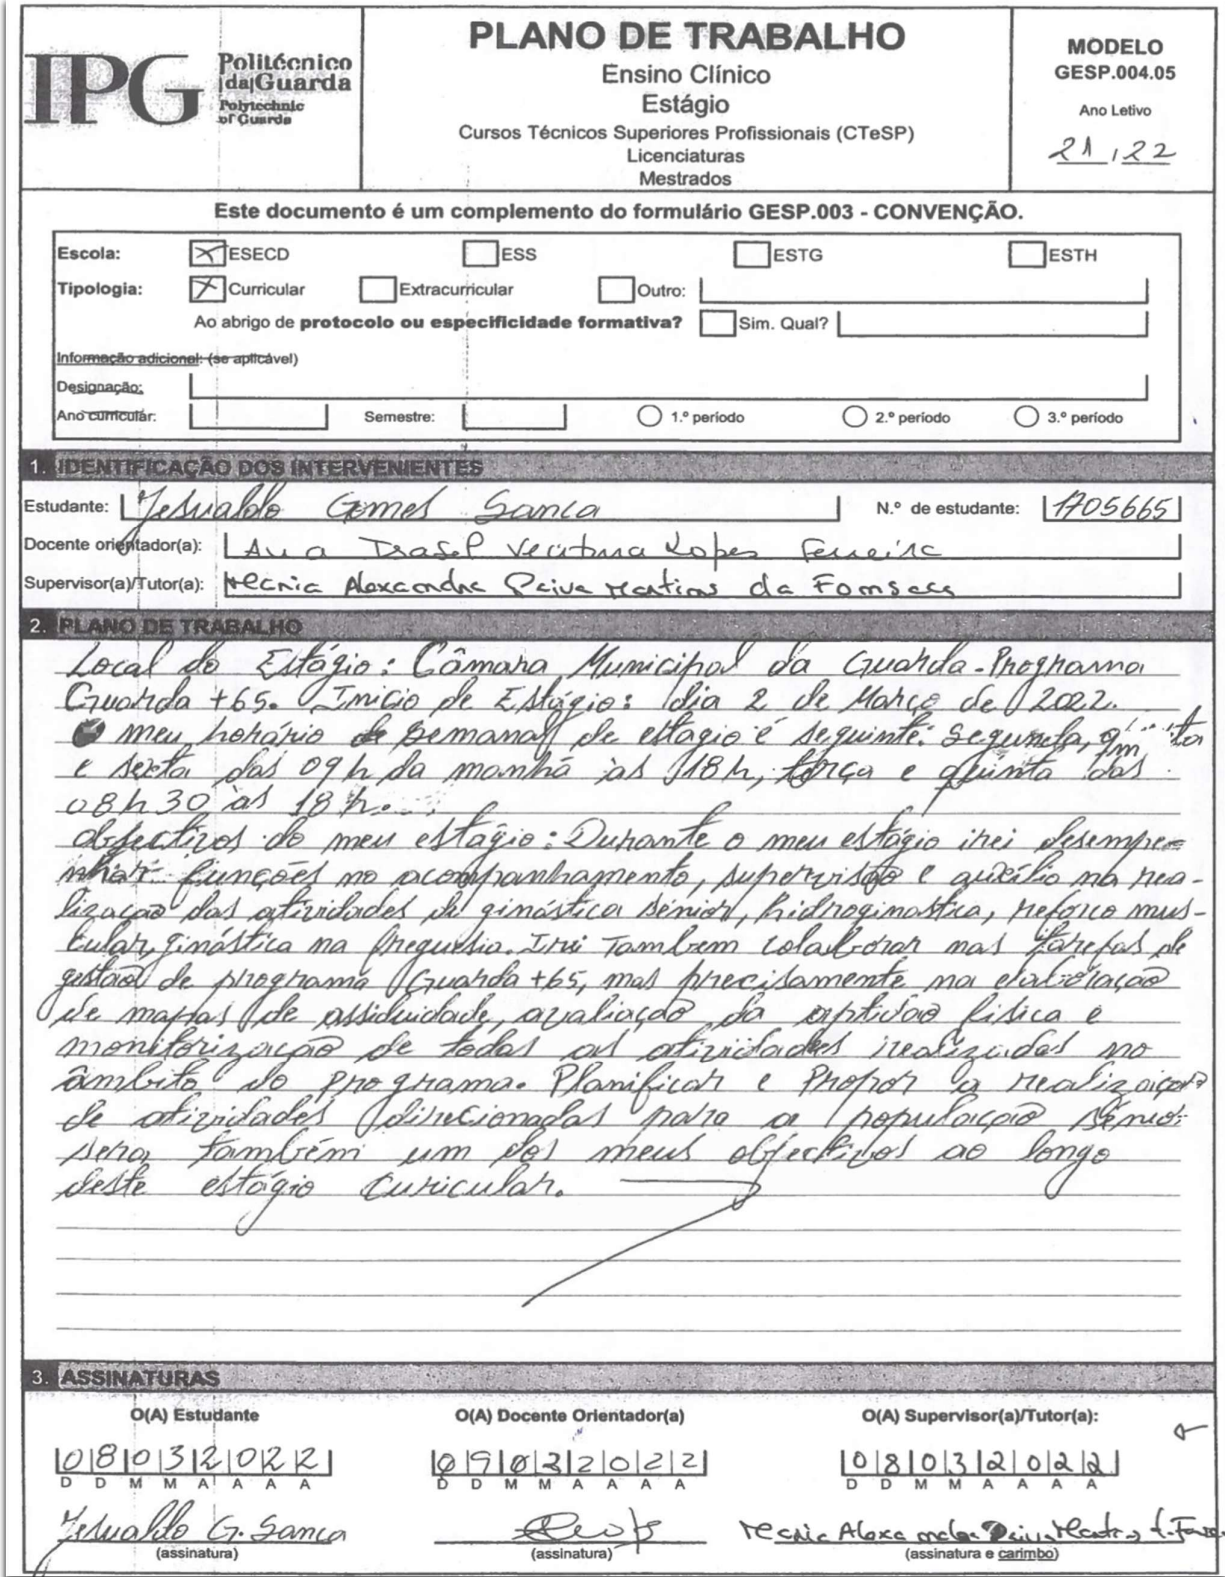 IPG Politécnico da Guarda
Polytechnic of Guarda
PLANO DE TRABALHO
Ensino Clínico
Estágio
Cursos Técnicos Superiores Profissionais (CTeSP)
Licenciaturas
Mestrados
MODELO
GESP.004.05
Ano Letivo
21/22
Este documento é um complemento do formulário GESP.003 - CONVENÇÃO.
Escola: X ESECD ESS ESTG ESTH
Tipologia: X Curricular Extracurricular Outro:
Ao abrigo de protocolo ou especificidade formativa? Sim. Qual?
Informação adicional: (se aplicável)
Designação:
Ano curricular: Semestre: 1.º período 2.º período 3.º período
1. IDENTIFICAÇÃO DOS INTERVENIENTES
Estudante: Jesualdo Gomes Sanca N.º de estudante: 1705665
Docente orientador(a): Ana Isabel Ventura Lopes Ferreira
Supervisor(a)/Tutor(a): Maria Alexandra Paiva Martins da Fonseca
2. PLANO DE TRABALHO
Local do Estágio: Câmara Municipal da Guarda - Programa
Guarda +65. Inicio de Estágio: dia 2 de Março de 2022.
O meu horário de semanal de estagio é seguinte: segunda,
e sexta das 09h da manhã às 18h, terça e quinta das
08h30 às 18h.
objectivos do meu estágio: Durante o meu estágio irei desempe-
nhar funções no acompanhamento, supervisão e auxílio na rea-
lização das atividades de ginástica sénior, hidroginastica, reforço mus-
cular, ginástica na freguesia. Irei Também colaborar nas tarefas de
gestão de programa Guarda +65, mas precisamente na elaboração
de mapas de assiduidade, avaliação da aptidão fisica e
monitorização de todas as atividades realizadas no
âmbito do programa. Planificar e Propor a realização
de atividades direcionadas para a população sénior
sera também um dos meus objectivos ao longo
deste estágio curicular.
3. ASSINATURAS
O(A) Estudante O(A) Docente Orientador(a) O(A) Supervisor(a)/Tutor(a):
08032022 09032022 08032022
D D M M A A A A D D M M A A A A D D M M A A A A
Jesualdo G. Sanca Maria Alexandra Paiva Martins
(assinatura) (assinatura) (assinatura e carimbo)